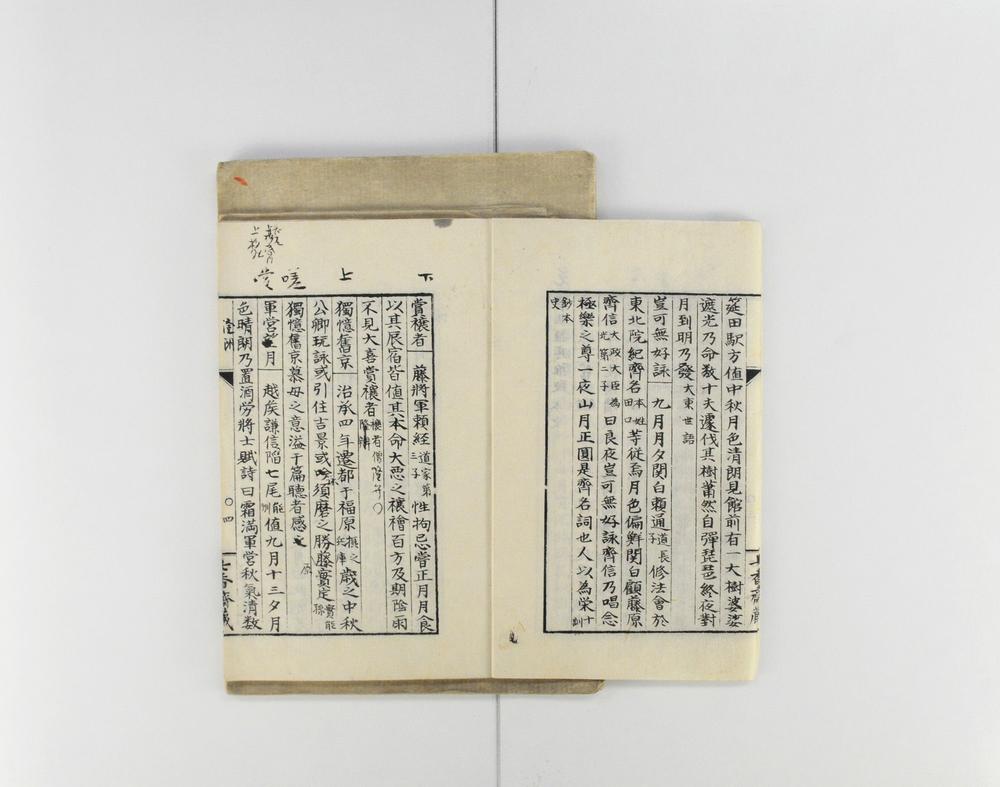 筵田駅方值中秋月色清朗見館前有一大樹婆娑
遮光乃命数十夫遽伐其樹蕭然自彈琵琶終夜對
月到明乃發大東世語
豈可無好詠 九月月夕関白頼通道長子修法會於
東北院紀齊名本姓田口等従焉月色偏鮮関白顧藤原
齊信太政大臣為光第二子曰良夜豈可無好詠齊信乃唱念
極樂之尊一夜山月正圓是齊名詞也人以為榮十訓
鈔本史
下
上
嗟
賞穰者 藤將軍頼経道家第三子性拘忌嘗正月月食
以其辰宿皆値其本命大悪之穰禬百方及期陰雨
不見大喜賞穰者
獨憶舊京 治承四年遷都于福原摂之兵庫歳之中秋
公卿玩詠或引住吉景或吟須磨之勝藤實定
獨憶舊京慕母之意溢于篇聽者感
軍営月 越矦謙信陷七尾能州値九月十三夕月
色晴朗乃置酒労將士賦詩曰霜満軍営秋氣清数
〇四